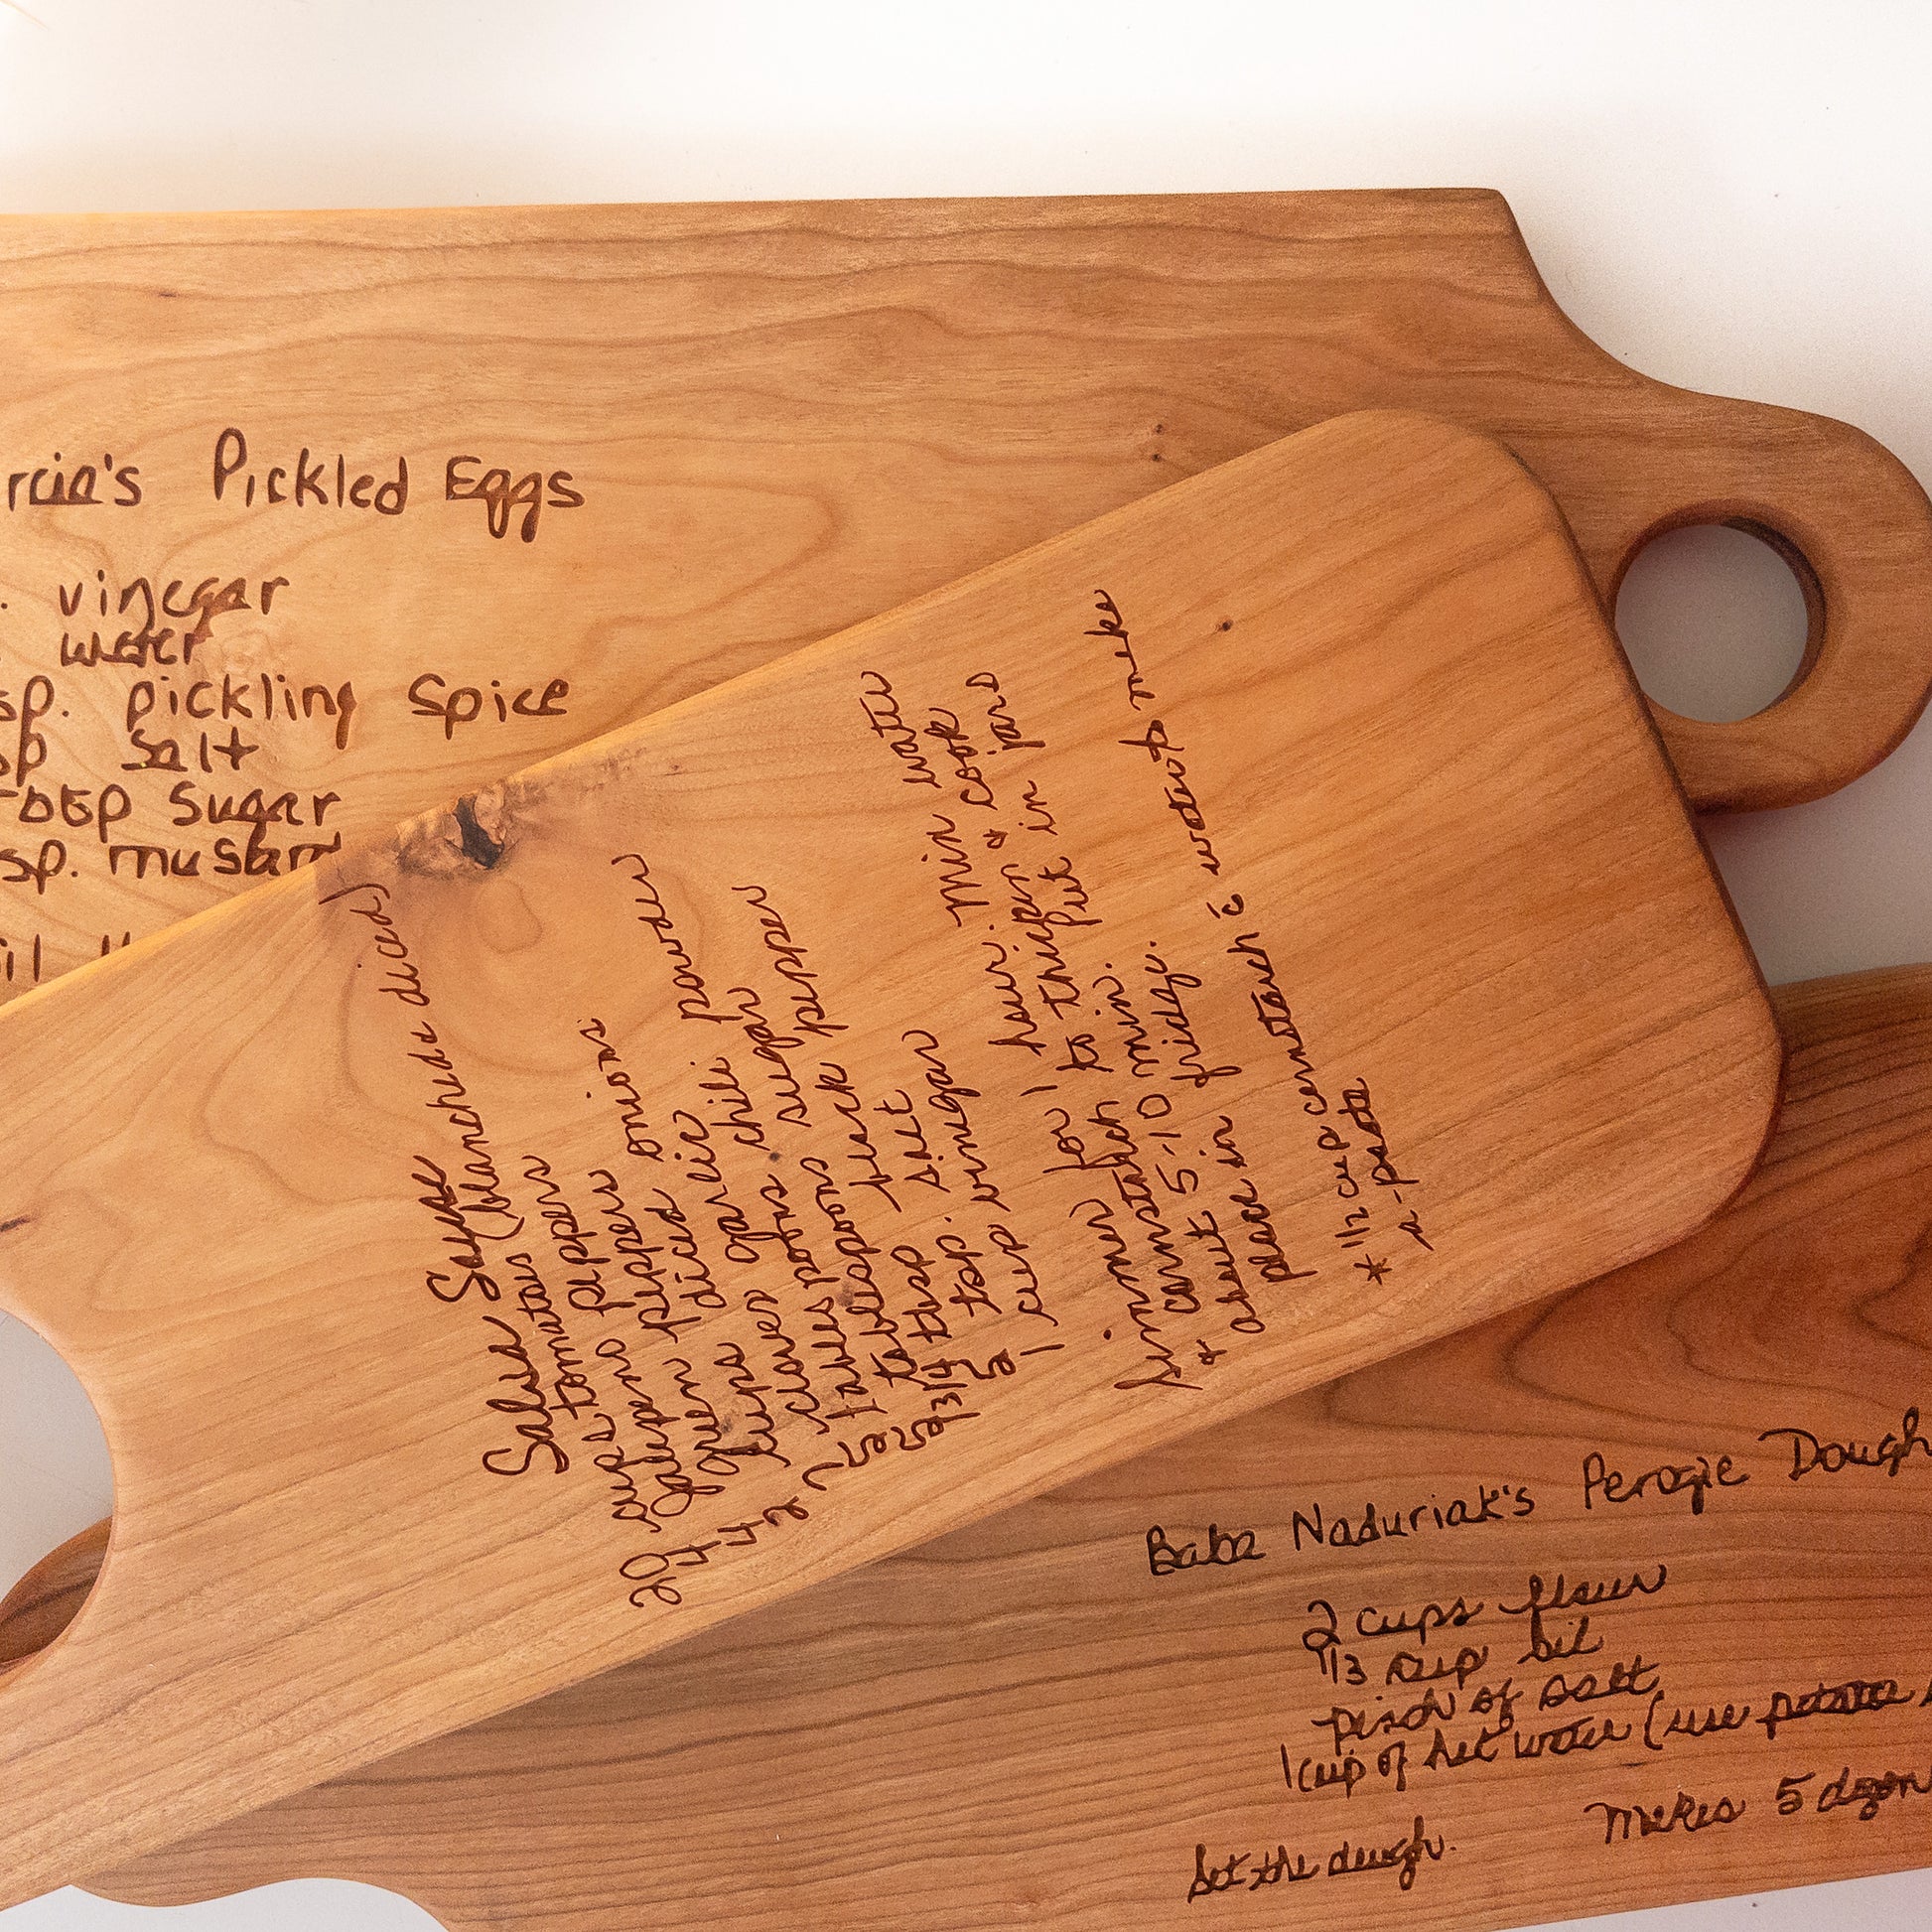 rcia's Pickled Eggs
. vinegar
water
sp. pickling Spice
sp Salt
TbSp Sugar
sp. mustard
il
Salsa Sause
20 cups tomatoes (blanched & diced)
4 Jalepeno peppers
4 green peppers
2 cups diced onions
7 cloves garlic
5 tablespoons chili powder
5 tablespoons sugar
2 3/4 tbsp black pepper
5 tsp. salt
1 cup vinegar
Simmer for 1 hour. Mix water
& cornstarch to thicken & cook
about 5-10 min. Put in jars
place in fridge.
* 1/2 cup cornstarch c̄ water to make
a - paste
Baba Naduriak's Perogie Dough
2 cups flour
1/3 cup oil
pinch of salt
1 cup of hot water (use potato
makes 5 dozen
Set the dough.